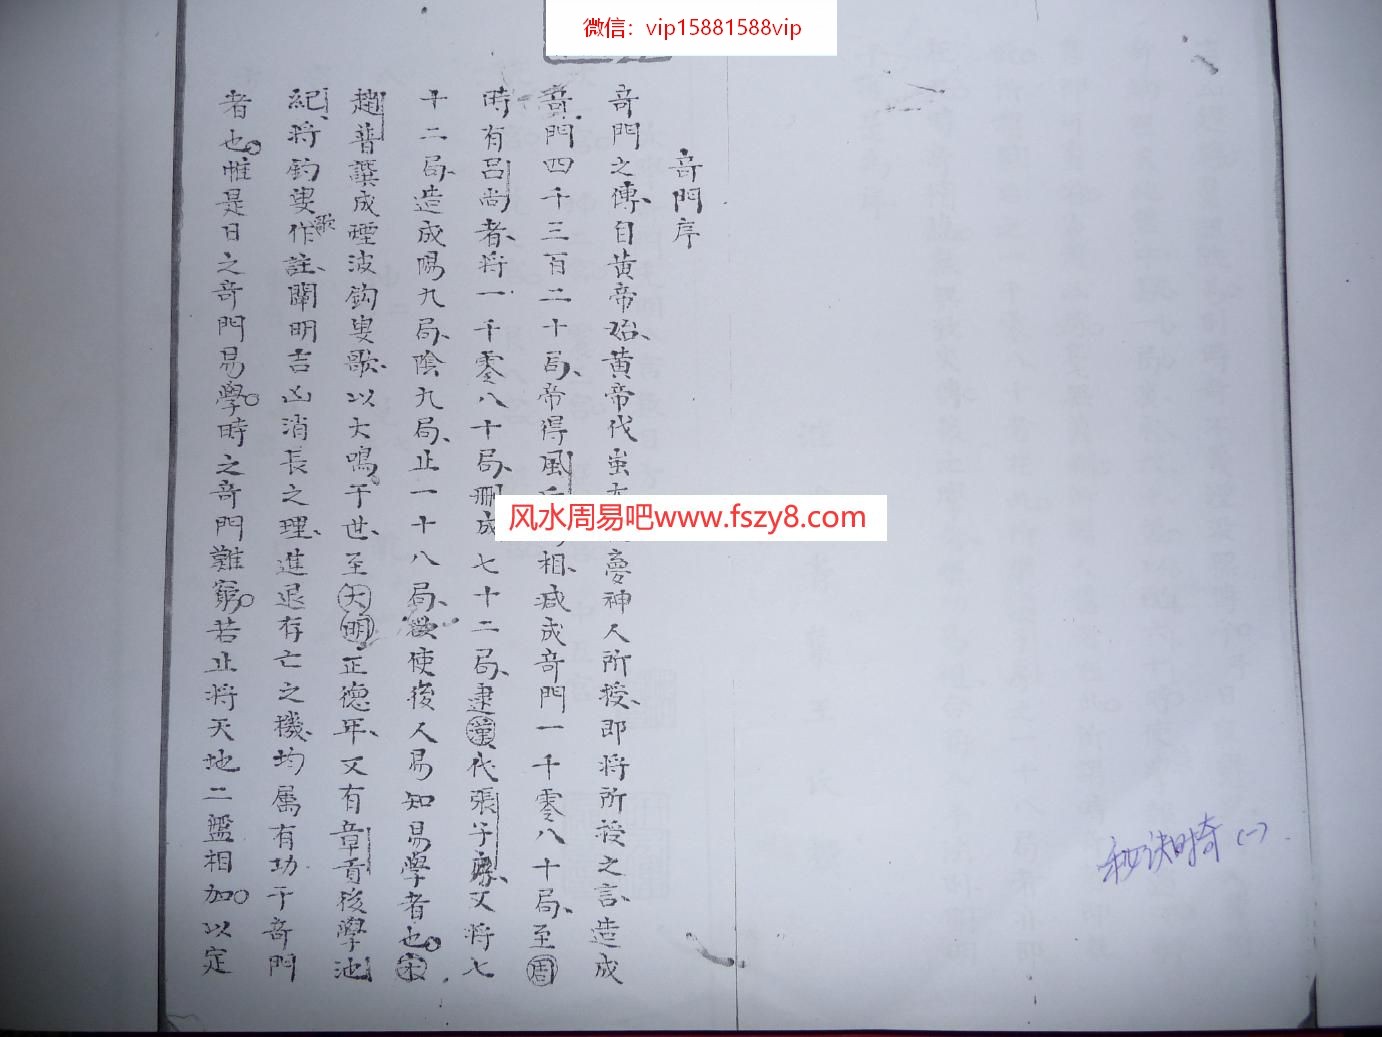 微信：vip15881588vip
奇門序
奇門之傳、自黄帝始、黄帝代蚩夢神人所授、即將所授之言、造成
奇門四千三百二十局、帝得風相、減成奇門一千零八十局、至周
時有吕尚者、將一千零八十局、刪成七十二局、逮漢代張子房、又將七
十二局、造成陽九局、陰九局、止一十八局、欲使後人易知易學者也。宋
趙普譔成煙波鈎叟歌、以大鳴于世、至大明正德年、又有章貢後學池
紀、將釣叟歌作註、闡明吉凶消長之理、進退存亡之機、均屬有功于奇門
者也。惟是日之奇門易學。時之奇門難窮。若止將天地二盤相加。以定
风水周易吧www.fszy8.com
秘诀时奇（一）